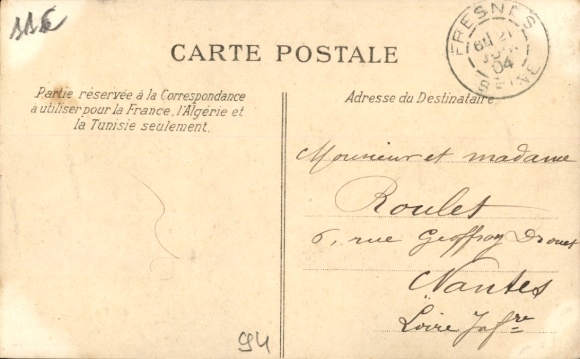 CARTE POSTALE
FRESNES
21
04
SEINE
Partie réservée à la Correspondance
à utiliser pour la France, l'Algérie et
la Tunisie seulement.
Adresse du Destinataire
Monsieur et madame
Roulet
6, rue Geoffroy Drouet
Nantes
Loire Infre
94